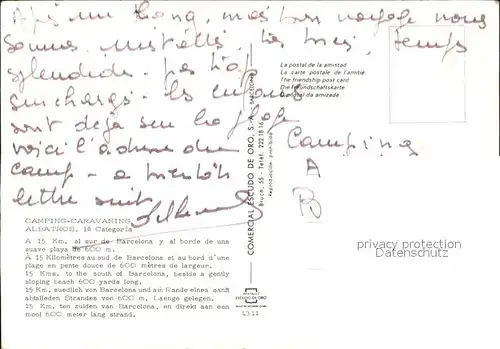 Après un long, mais bon voyage nous
sommes installés, très bien, temps
splendide - pas trop
surchargé - les enfants
sont déjà sur la plage
voici l'adresse du
camp - a bientôt
lettre suit
Camping
A
B
La postal de la amistad
La carte postale de l'amitié
The friendship post card
Die Freundschaftskarte
O postal da amizade
COMERCIAL ESCUDO DE ORO, S.A.
Bruch, 55 - Telef. 222 18 16
Reproducción prohibida
CAMPING-CARAVANING
ALBATROS, 1ª Categoría
A 15 Km. al sur de Barcelona y al borde de una
suave playa de 600 m.
À 15 Kilomètres au sud de Barcelona et au bord d'une
plage en pente douce de 600 mètres de largeur.
15 Kms. to the south of Barcelona, beside a gently
sloping beach 600 yards long.
15 Km. suedlich von Barcelona und am Rande eines sanft
abfallenden Strandes von 600 m. Laenge gelegen.
15 Km. ten zuiden van Barcelona, en direkt aan een
mooi 600 meter lang strand.
ESCUDO DE ORO
privacy protection
Datenschutz